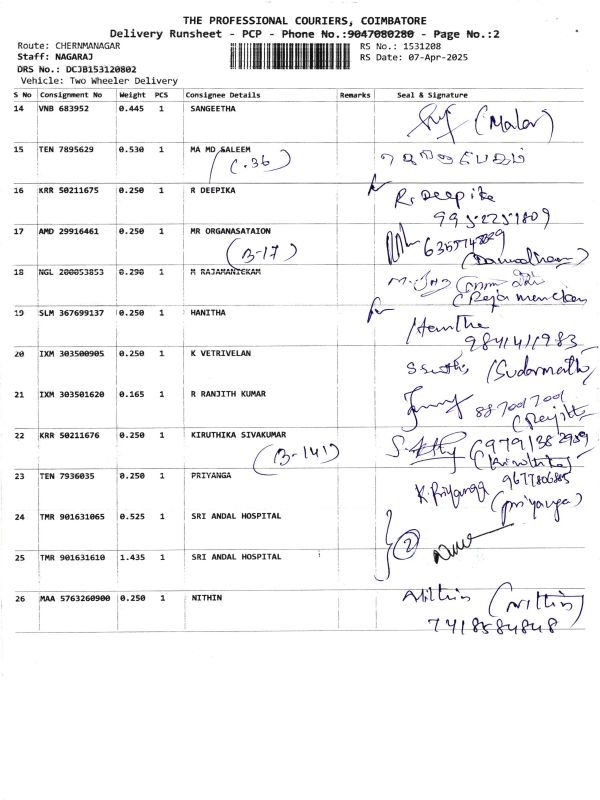 THE PROFESSIONAL COURIERS, COIMBATORE
Delivery Runsheet - PCP - Phone No.:9047080280 - Page No.:2
Route: CHERNMANAGAR
RS No.: 1531208
Staff: NAGARAJ
RS Date: 07-Apr-2025
DRS No.: DCJB153120802
Vehicle: Two Wheeler Delivery
S No Consignment No Weight PCS Consignee Details Remarks Seal & Signature
14 VNB 683952 0.445 1 SANGEETHA
(Malar)
15 TEN 7895629 0.530 1 MA MD SALEEM
(C.36)
16 KRR 50211675 0.250 1 R DEEPIKA
R. Deepika
17 AMD 29916461 0.250 1 MR ORGANASATAION
(B-17)
18 NGL 200053853 0.290 1 M RAJAMANICKAM
19 SLM 367699137 0.250 1 HANITHA
9841411983
20 IXM 303500905 0.250 1 K VETRIVELAN
21 IXM 303501620 0.165 1 R RANJITH KUMAR
8870017001
22 KRR 50211676 0.250 1 KIRUTHIKA SIVAKUMAR
(B-141)
23 TEN 7936035 0.250 1 PRIYANGA
K. Priyanga 9677806885
(priyanga)
24 TMR 901631065 0.525 1 SRI ANDAL HOSPITAL
2
25 TMR 901631610 1.435 1 SRI ANDAL HOSPITAL
26 MAA 5763260900 0.250 1 NITHIN
Nithin (Nithin)
7418584848